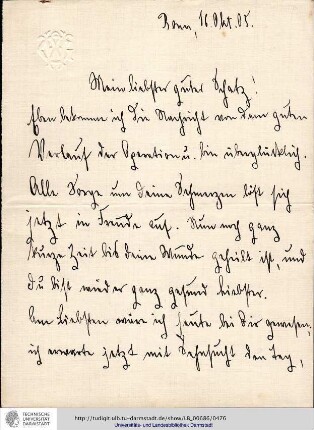 Bonn, 16 Okt. 05.
Mein liebster guter Schatz!
Eben bekomme ich die Nachricht von dem guten
Verlauf der Operation u. bin überglücklich.
Alle Sorge um deine Schmerzen löst sich
jetzt in Freude auf. Nun noch ganz
kurze Zeit bis deine Wunde geheilt ist, und
du bist wieder ganz gesund liebster.
Am Liebsten wäre ich heute bei Dir gewesen,
ich erwarte jetzt mit Sehnsucht den Tag,
TECHNISCHE
UNIVERSITÄT
DARMSTADT
http://tudigit.ulb.tu-darmstadt.de/show/LB_00686/0476
Universitäts- und Landesbibliothek Darmstadt